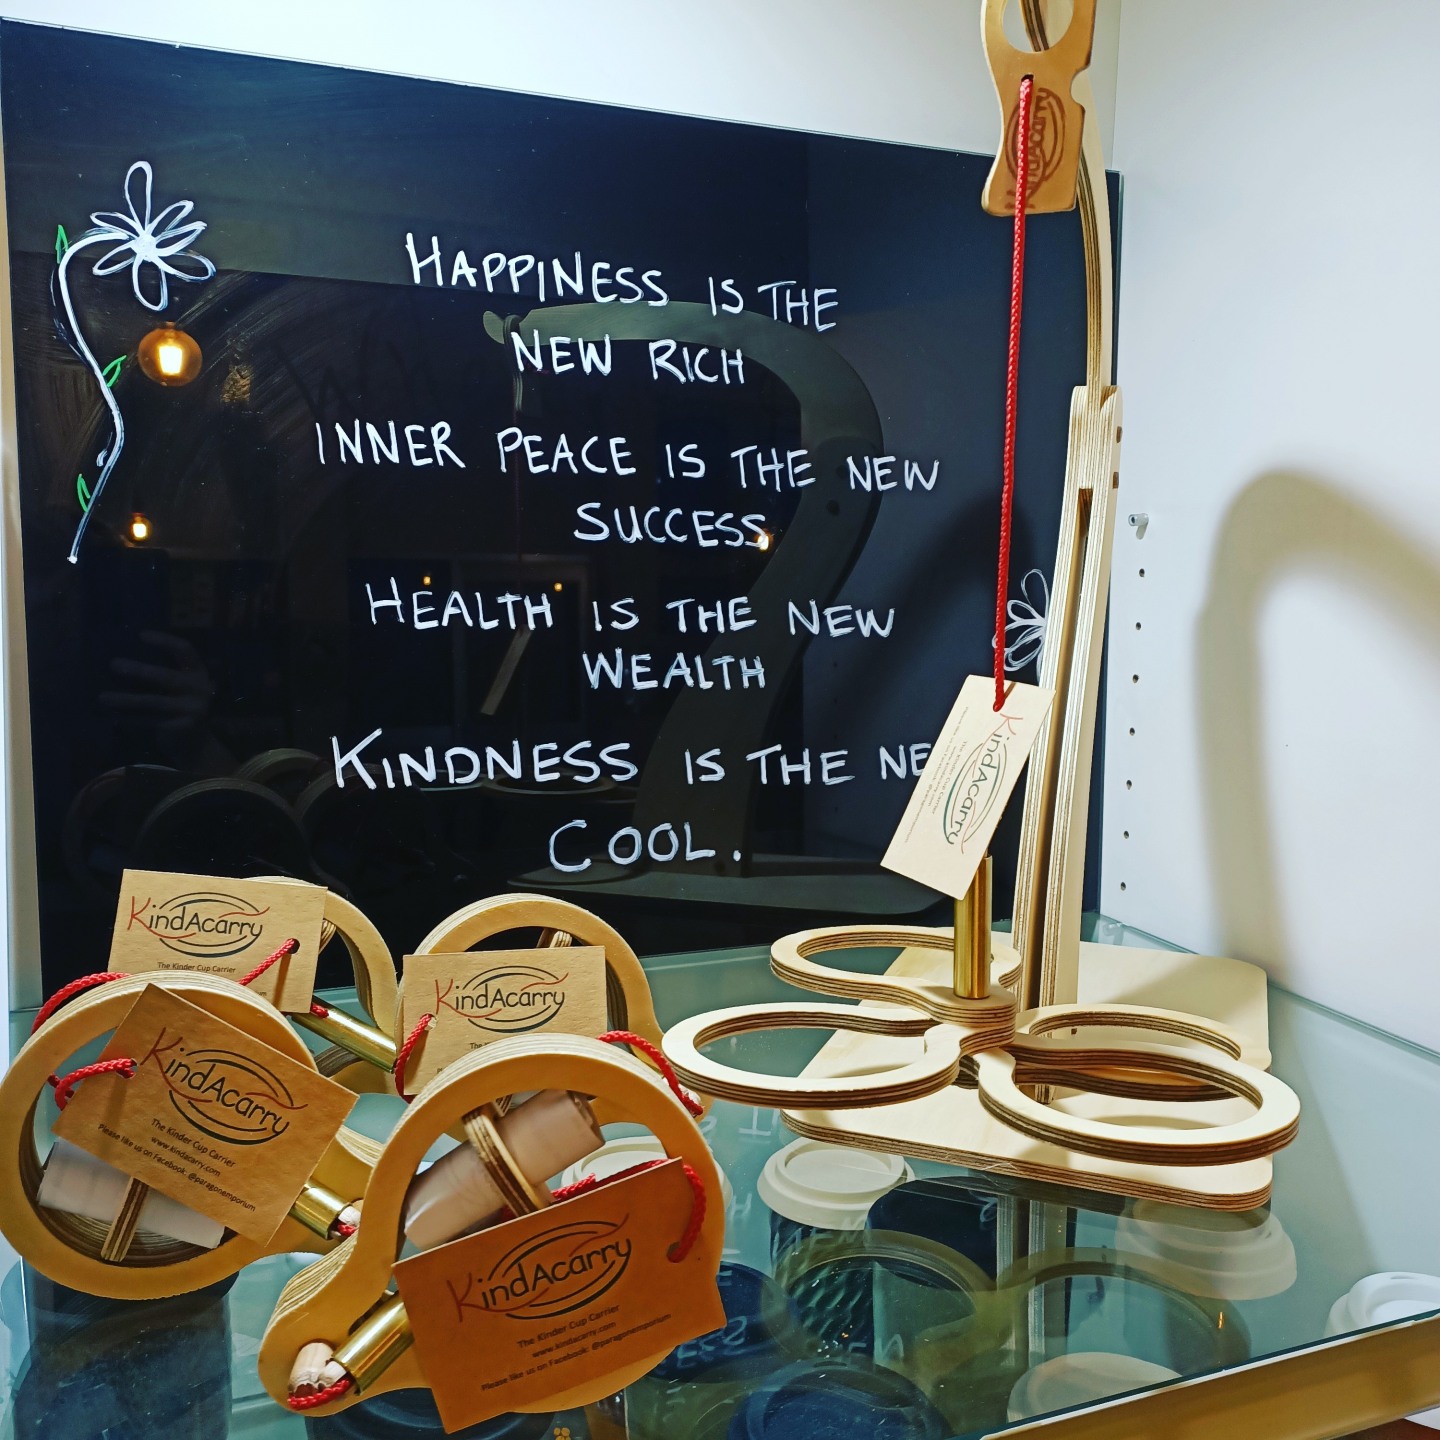 HAPPINESS IS THE
NEW RICH
INNER PEACE IS THE NEW
SUCCESS
HEALTH IS THE NEW
WEALTH
KINDNESS IS THE NE
COOL.
KindAcarry
KindAcarry
The Kinder Cup Carrier
KindAcarry
KindAcarry
The Kinder Cup Carrier
www.kindacarry.com
Please like us on Facebook: @paragonemporium
KindAcarry
The Kinder Cup Carrier
www.kindacarry.com
Please like us on Facebook: @paragonemporium